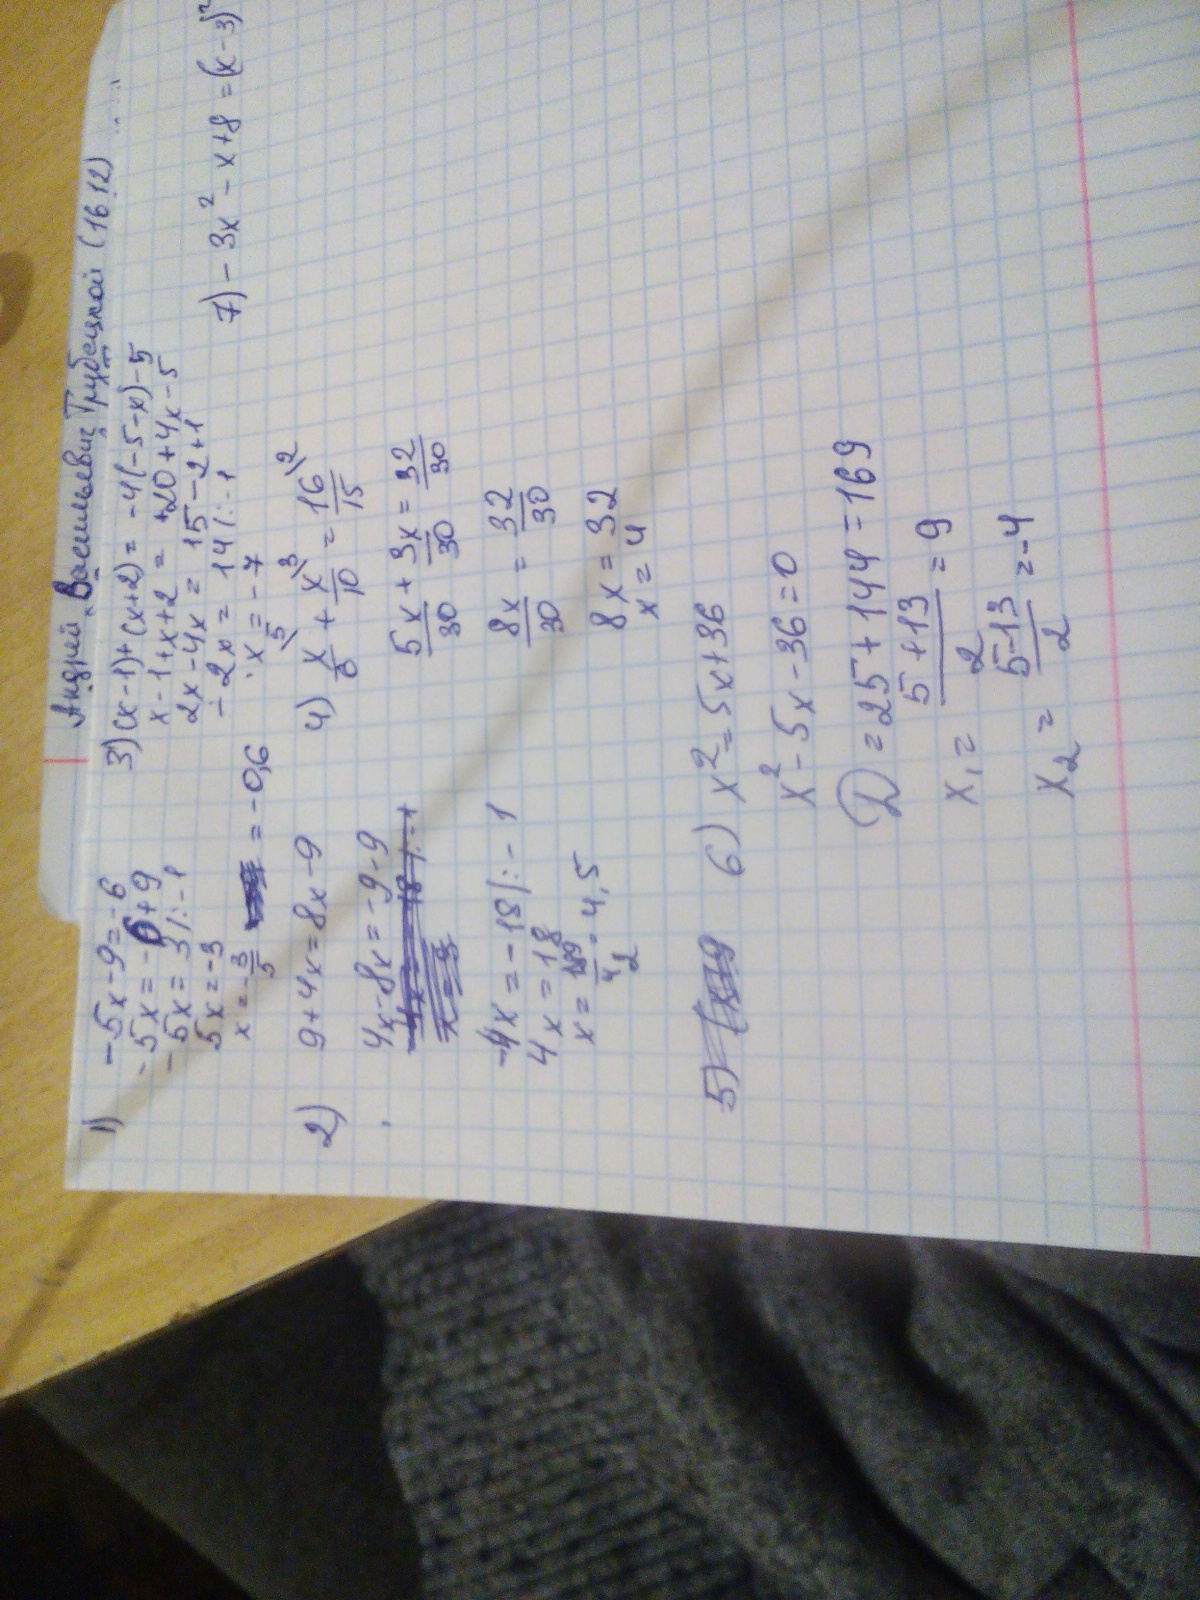 Андрей Васильевич Трубецкой (1612)
1) -5x-9=-6
-5x=-6+9
-5x=3 /:-1
5x=-3
x=-3/5 = -0,6
2) 9+4x=8x-9
4x-8x=-9-9
-4x=-18 /:-1
4x=18
x= /4 =4,5
2
3) (x-1)+(x+2)=-4(-5-x)-5
x-1+x+2=+20+4x-5
2x-4x=15-2+1
-2x=14 /:-1
x=-7
4) x/6 \5 + x/10 \3 = 16/15 \2
5x/30 + 3x/30 = 32/30
8x/30 = 32/30
8x=32
x=4
5)
6) x²=5x+36
x²-5x-36=0
D=25+144=169
x₁= 5+13/2 =9
x₂= 5-13/2 =-4
7) -3x²-x+8=(x-3)²